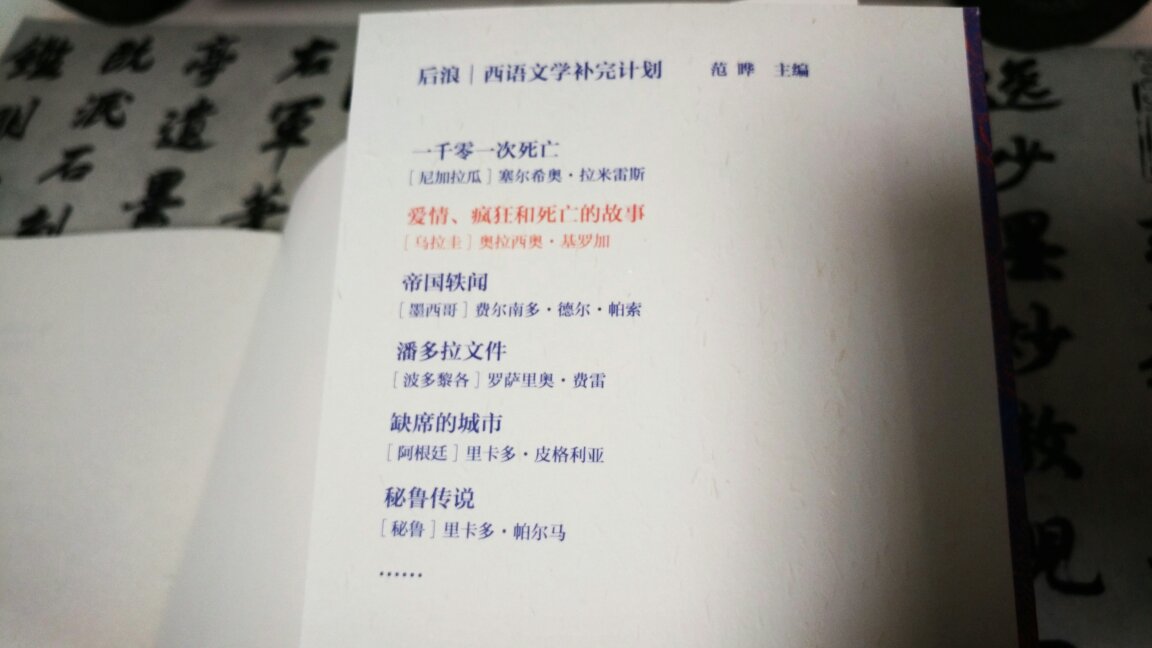 后浪｜西语文学补完计划 范晔 主编
一千零一次死亡
［尼加拉瓜］塞尔希奥·拉米雷斯
爱情、疯狂和死亡的故事
［乌拉圭］奥拉西奥·基罗加
帝国轶闻
［墨西哥］费尔南多·德尔·帕索
潘多拉文件
［波多黎各］罗萨里奥·费雷
缺席的城市
［阿根廷］里卡多·皮格利亚
秘鲁传说
［秘鲁］里卡多·帕尔马
……
右軍
亭遺墨
石刻
逸少墨妙